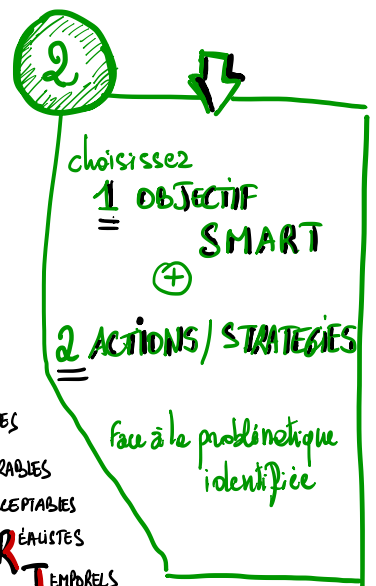 2
choisissez
1 OBJECTIF
SMART
+
2 ACTIONS/STRATEGIES
Face à la problématique
identifiée
ES
RABLES
CEPTABLES
RÉALISTES
TEMPORELS